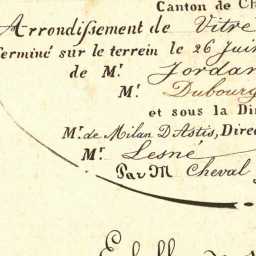 Canton de Ch
Arrondissement de Vitré
Terminé sur le terrein le 26 Juin
de Mr. Jordan
Mr. Dubourg
et sous la Di
Mr. de Milan D'Astis, Direc
Mr. Lesné
Par M Cheval